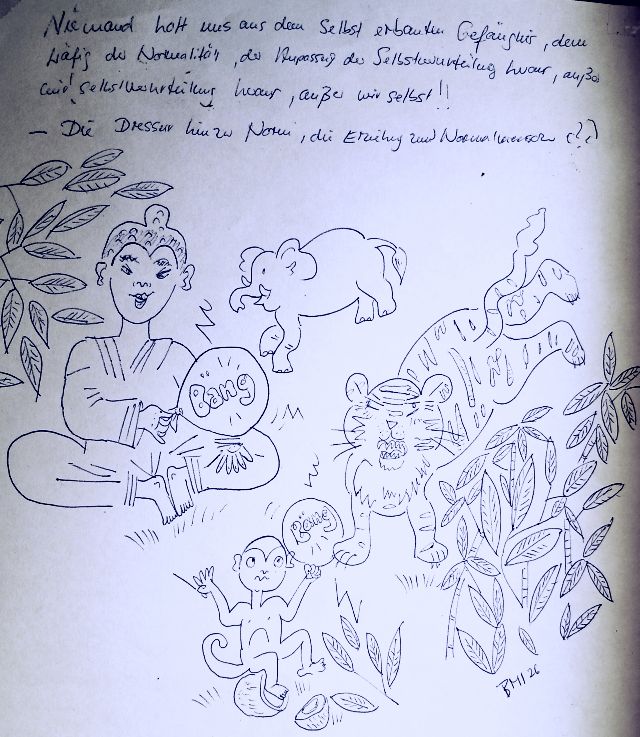 Niemand holt uns aus dem Selbst erbauten Gefängnis, dem
Käfig der Normalität, der Anpassung der Selbstverurteilung heraus, außer
und Selbstverurteilung heraus, außer wir selbst!!
– Die Dressur hin zur Norm, die Erziehung zum Normalmenschen (??)
Bäng
Bäng
BMI 26